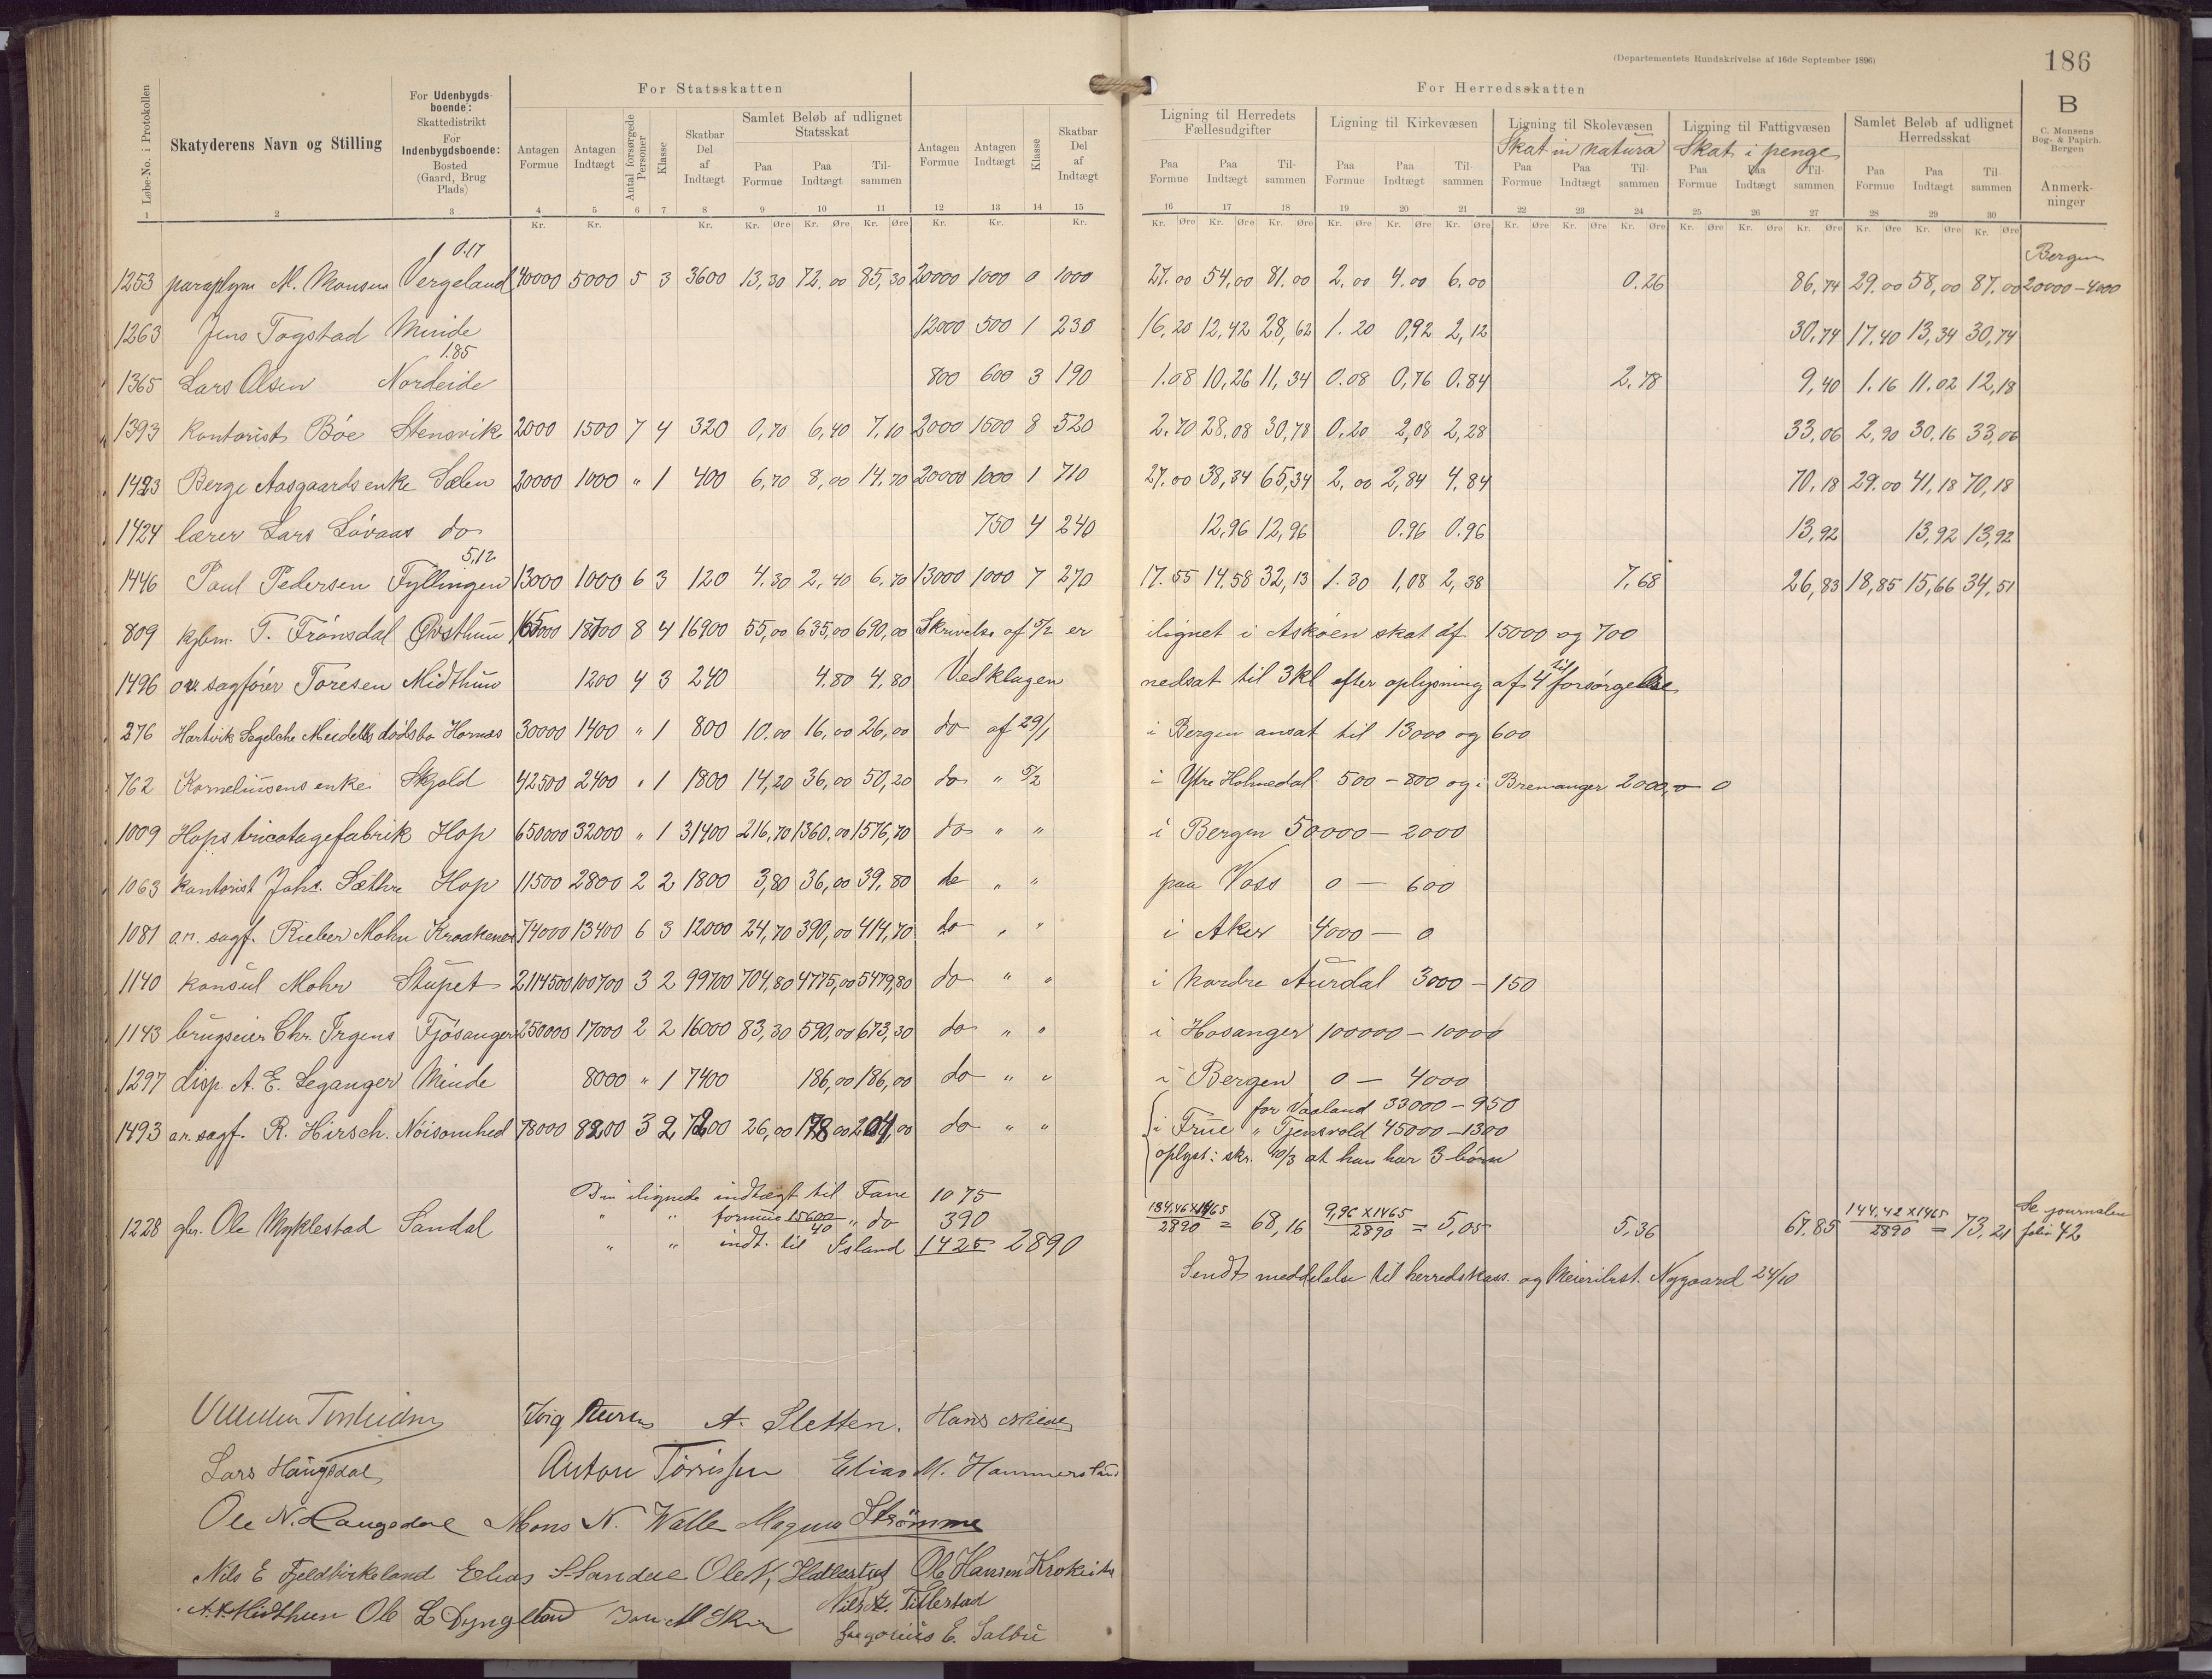 (Departementets Rundskrivelse af 16de September 1896)
186
For Statsskatten
For Herredsskatten
B
C. Monsens Bog- & Papirh. Bergen
Løbe-No. i Protokollen
Skatyderens Navn og Stilling
For Udenbygdsboende: Skattedistrikt For Indenbygdsboende: Bosted (Gaard, Brug Plads)
Antagen Formue
Antagen Indtægt
Antal forsørgede Personer
Klasse
Skatbar Del af Indtægt
Samlet Beløb af udlignet Statsskat
Paa Formue Paa Indtægt Tilsammen
Antagen Formue
Antagen Indtægt
Klasse
Skatbar Del af Indtægt
Ligning til Herredets Fællesudgifter
Paa Formue Paa Indtægt Tilsammen
Ligning til Kirkevæsen
Paa Formue Paa Indtægt Tilsammen
Ligning til Skolevæsen
Skat in natura
Paa Formue Paa Indtægt Tilsammen
Ligning til Fattigvæsen
Skat i penge
Paa Formue Paa Indtægt Tilsammen
Samlet Beløb af udlignet Herredsskat
Paa Formue Paa Indtægt Tilsammen
Anmerkninger
1 2 3 4 5 6 7 8 9 10 11 12 13 14 15 16 17 18 19 20 21 22 23 24 25 26 27 28 29 30
1 0.17
Bergen
1253 paraplym M. Monsen Vergeland 40000 5000 5 3 3600 13,30 72.00 85,30 20000 1000 0 1000 27.00 54,00 81.00 2,00 4.00 6.00 0.26 86,74 29.00 58,00 87.00 20000-4000
1263 Jens Togstad Minde 12000 500 1 230 16,20 12,42 28,62 1.20 0,92 2,12 30,74 17.40 13,34 30,74
1.85
1365 Lars Olsen Nordeide 800 600 3 190 1.08 10,26 11,34 0.08 0,76 0.84 2.78 9,40 1.16 11.02 12,18
1393 Kontorist Bøe Stensvik 2000 1500 7 4 320 0,70 6,40 7.10 2000 1500 8 520 2.70 28,08 30,78 0.20 2,08 2,28 33,06 2,90 30,16 33,06
1423 Berge Aasgaards enke Sælen 20000 1000 " 1 400 6,70 8,00 14.70 20000 1000 1 710 27.00 38,34 65,34 2,00 2,84 4,84 70,18 29.00 41,18 70,18
1424 lærer Lars Løvaas do 750 4 240 12,96 12,96 0.96 0.96 13,92 13,92 13,92
5,12
1446 Paul Pedersen Fyllingen 13000 1000 6 3 120 4.30 2,40 6,70 13000 1000 7 270 17.55 14.58 32,13 1.30 1,08 2,38 7,68 26,83 18,85 15,66 34,51
809 kjbm. T. Frønsdal Øvsthun 165000 18700 8 4 16900 55,00 635,00 690,00 Skrivelse af 5/2 er ilignet i Askøen skat af 15000 og 700
1496 o.r. sagfører Toresen Midthun 1200 4 3 240 4.80 4,80 Ved klagen nedsat til 3 kl efter oplysning af til 4 forsørgelse
276 Hartvik Segelche Meidells dødsbo Hornæs 30000 1400 " 1 800 10.00 16,00 26,00 do af 29/1 i Bergen ansat til 13000 og 600
762 Korneliusens enke Skjold 42500 2400 " 1 1800 14,20 36,00 50,20 do " 5/2 i Ytre Holmedal 500-800 og i Bremanger 2000,- 0
1009 Hops tricotagefabrik Hop 650000 32000 " 1 31400 216,70 1360,00 1576,70 do " " i Bergen 50000-2000
1063 kontorist Johs. Sæthre Hop 11500 2800 2 2 1800 3,80 36,00 39,80 do " " paa Voss 0 - 600
1081 o.r. sagf. Rieber Mohn Kraakenes 74000 13400 6 3 12000 24,70 390,00 414,70 do " " i Aker 4000 - 0
1140 konsul Mohr Stupet 2114500 100700 3 2 99700 704,80 4775,00 5479,80 do " " i Nordre Aurdal 3000-150
1143 brugseier Chr. Irgens Fjøsanger 250000 17000 2 2 16000 83,30 590,00 673,30 do " " i Hosanger 100000-10000
1297 disp. A. E. Leganger Minde 8000 " 1 7400 186,00 186,00 do " " i Bergen 0 - 4000
1493 o.r. sagf. R. Hirsch. Nøisomhed 78000 8200 3 2 7200 26,00 178,00 204,00 do " " i Frue for Vaaland 33000-950
" Tjensvold 45000-1300
oplyst: skr. 10/3 at han har 3 børn
Den ilignede indtægt til Fane 1075
" " formue 15600/40 " do 390
" " indt. til Østand 1425 2890
1228 gbr. Ole Myklestad Sandal 134,46×1465/2890 = 68,16 9,96×1465/2890 = 5,05 5,36 67.85 144,42×1465/2890 = 73,21 Se journalen folio 42
Sendt meddelelse til herredskass. og Meieribest. Nygaard 24/10
A. Sletten. Hans
Lars Haugsdal Anton Tørrissen Elias M. Hammersland
Ole N. Haugsdal Mons N. Walle Magnus Strømme
Nils E Fjeldbirkeland Elias S Sandal Ole N, Hatlestad Ole Hansen Krokeide
A. Midthun Ole L Dyngeland Nils Titlestad
Gregorius E. Salbu